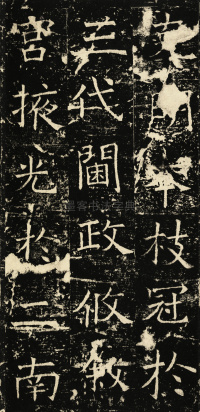 明本枝冠於
三代閫政攸敘
宮掖光於二南